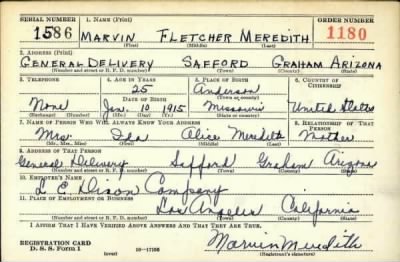 SERIAL NUMBER 1. NAME (Print) ORDER NUMBER
1586 MARVIN FLETCHER MEREDITH 1180
(First) (Middle) (Last)
2. ADDRESS (Print)
GENERAL DELIVERY SAFFORD GRAHAM ARIZONA
(Number and street or R. F. D. number) (Town) (County) (State)
3. TELEPHONE 4. AGE IN YEARS 5. PLACE OF BIRTH 6. COUNTRY OF CITIZENSHIP
25 Anderson
DATE OF BIRTH (Town or county)
None Jan. 10 1915 Missouri United States
(Exchange) (Number) (Mo.) (Day) (Yr.) (State or country)
7. NAME OF PERSON WHO WILL ALWAYS KNOW YOUR ADDRESS 8. RELATIONSHIP OF THAT PERSON
Mrs. Ida Alice Meredith Mother
(Mr., Mrs., Miss) (First) (Middle) (Last)
9. ADDRESS OF THAT PERSON
General Delivery Safford Graham Arizona
(Number and street or R. F. D. number) (Town) (County) (State)
10. EMPLOYER'S NAME
L. E. Dixon Company
11. PLACE OF EMPLOYMENT OR BUSINESS
Los Angeles California
(Number and street or R. F. D. number) (Town) (County) (State)
I AFFIRM THAT I HAVE VERIFIED ABOVE ANSWERS AND THAT THEY ARE TRUE.
REGISTRATION CARD
D. S. S. Form 1 (over) Marvin Meredith
(Registrant's signature)